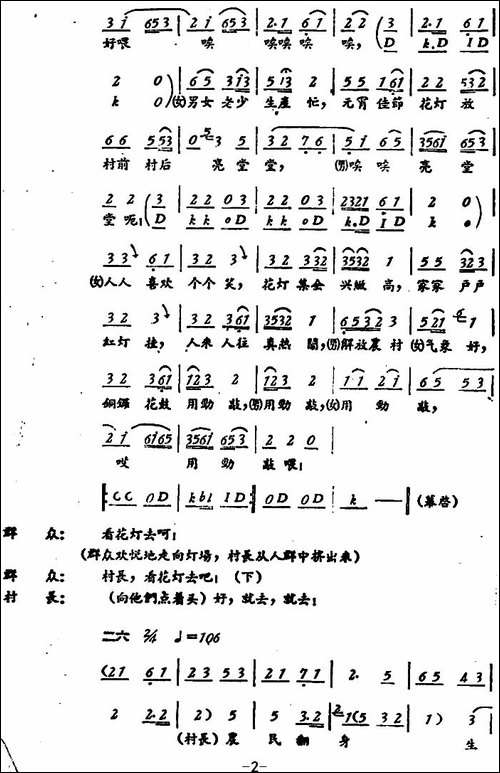 3 i 6 5 3 | 2 i 6 5 3 | 2·1 6 1 | 2 2 (3 | 2·1 6 1
好喂 唉 唉唉唉 唉, D k.D I D
2 0) | 6 5 3 1 3 | 5 1 3 2 | 5 5 1 6 1 | 2 2 5 3 2
k 0) (女)男女老少 生產忙, 元宵佳節 花灯放
6 6 5 5 3 | 0 5 3 5 | 3 2 7 6 | 5 1 6 5 | 3561 6 5 3
村前村后 亮堂堂, (男)唉唉 亮堂
2 2 (3 | 2 2 0 3 | 2 2 0 3 | 2321 6 1 | 2 0)
堂呃! (D k k o D k k o D k.D I D k o)
3 3 6 1 | 3 2 3 | 3 2 3 3 2 | 3532 1 | 5 5 3 2 3
(女)人人喜欢 个个笑, 花灯集会 兴緻高, 家家户户
3 2 3 | 3 2 3 6 1 | 3532 1 | 6 5 3 2 3 | 5 2 1 6 1
紅灯挂, 人来人往 真热鬧, (男)解放農村 (女)气象好,
3 2 3 6 1 | 1 2 3 2 | 1 2 3 2 | 1 1 2 1 | 6 5 5 3
銅鑼花鼓 用勁敲, (男)用勁敲, (女)用勁敲,
2 i 6 i 6 5 | 3561 6 5 3 | 2 2 0
哎 用勁敲喂!
C C O D | k b l I D | O D O D | k — (幕啓)
群 众: 看花灯去呵!
(群众欢悦地走向灯場, 村長从人群中挤出来)
群 众: 村長, 看花灯去吧! (下)
村 長: (向他們点着头) 好, 就去, 就去!
二六 2/4 ♩=106
(2 1 6 1 | 2 3 5 3 | 2 1 7 1 | 2· 5 | 6 5 4 3
2 2·2 | 2) 5 | 5 3·2 | 2 1 (5 3 2 | 1) 3
(村長) 農民翻身 生
-2-